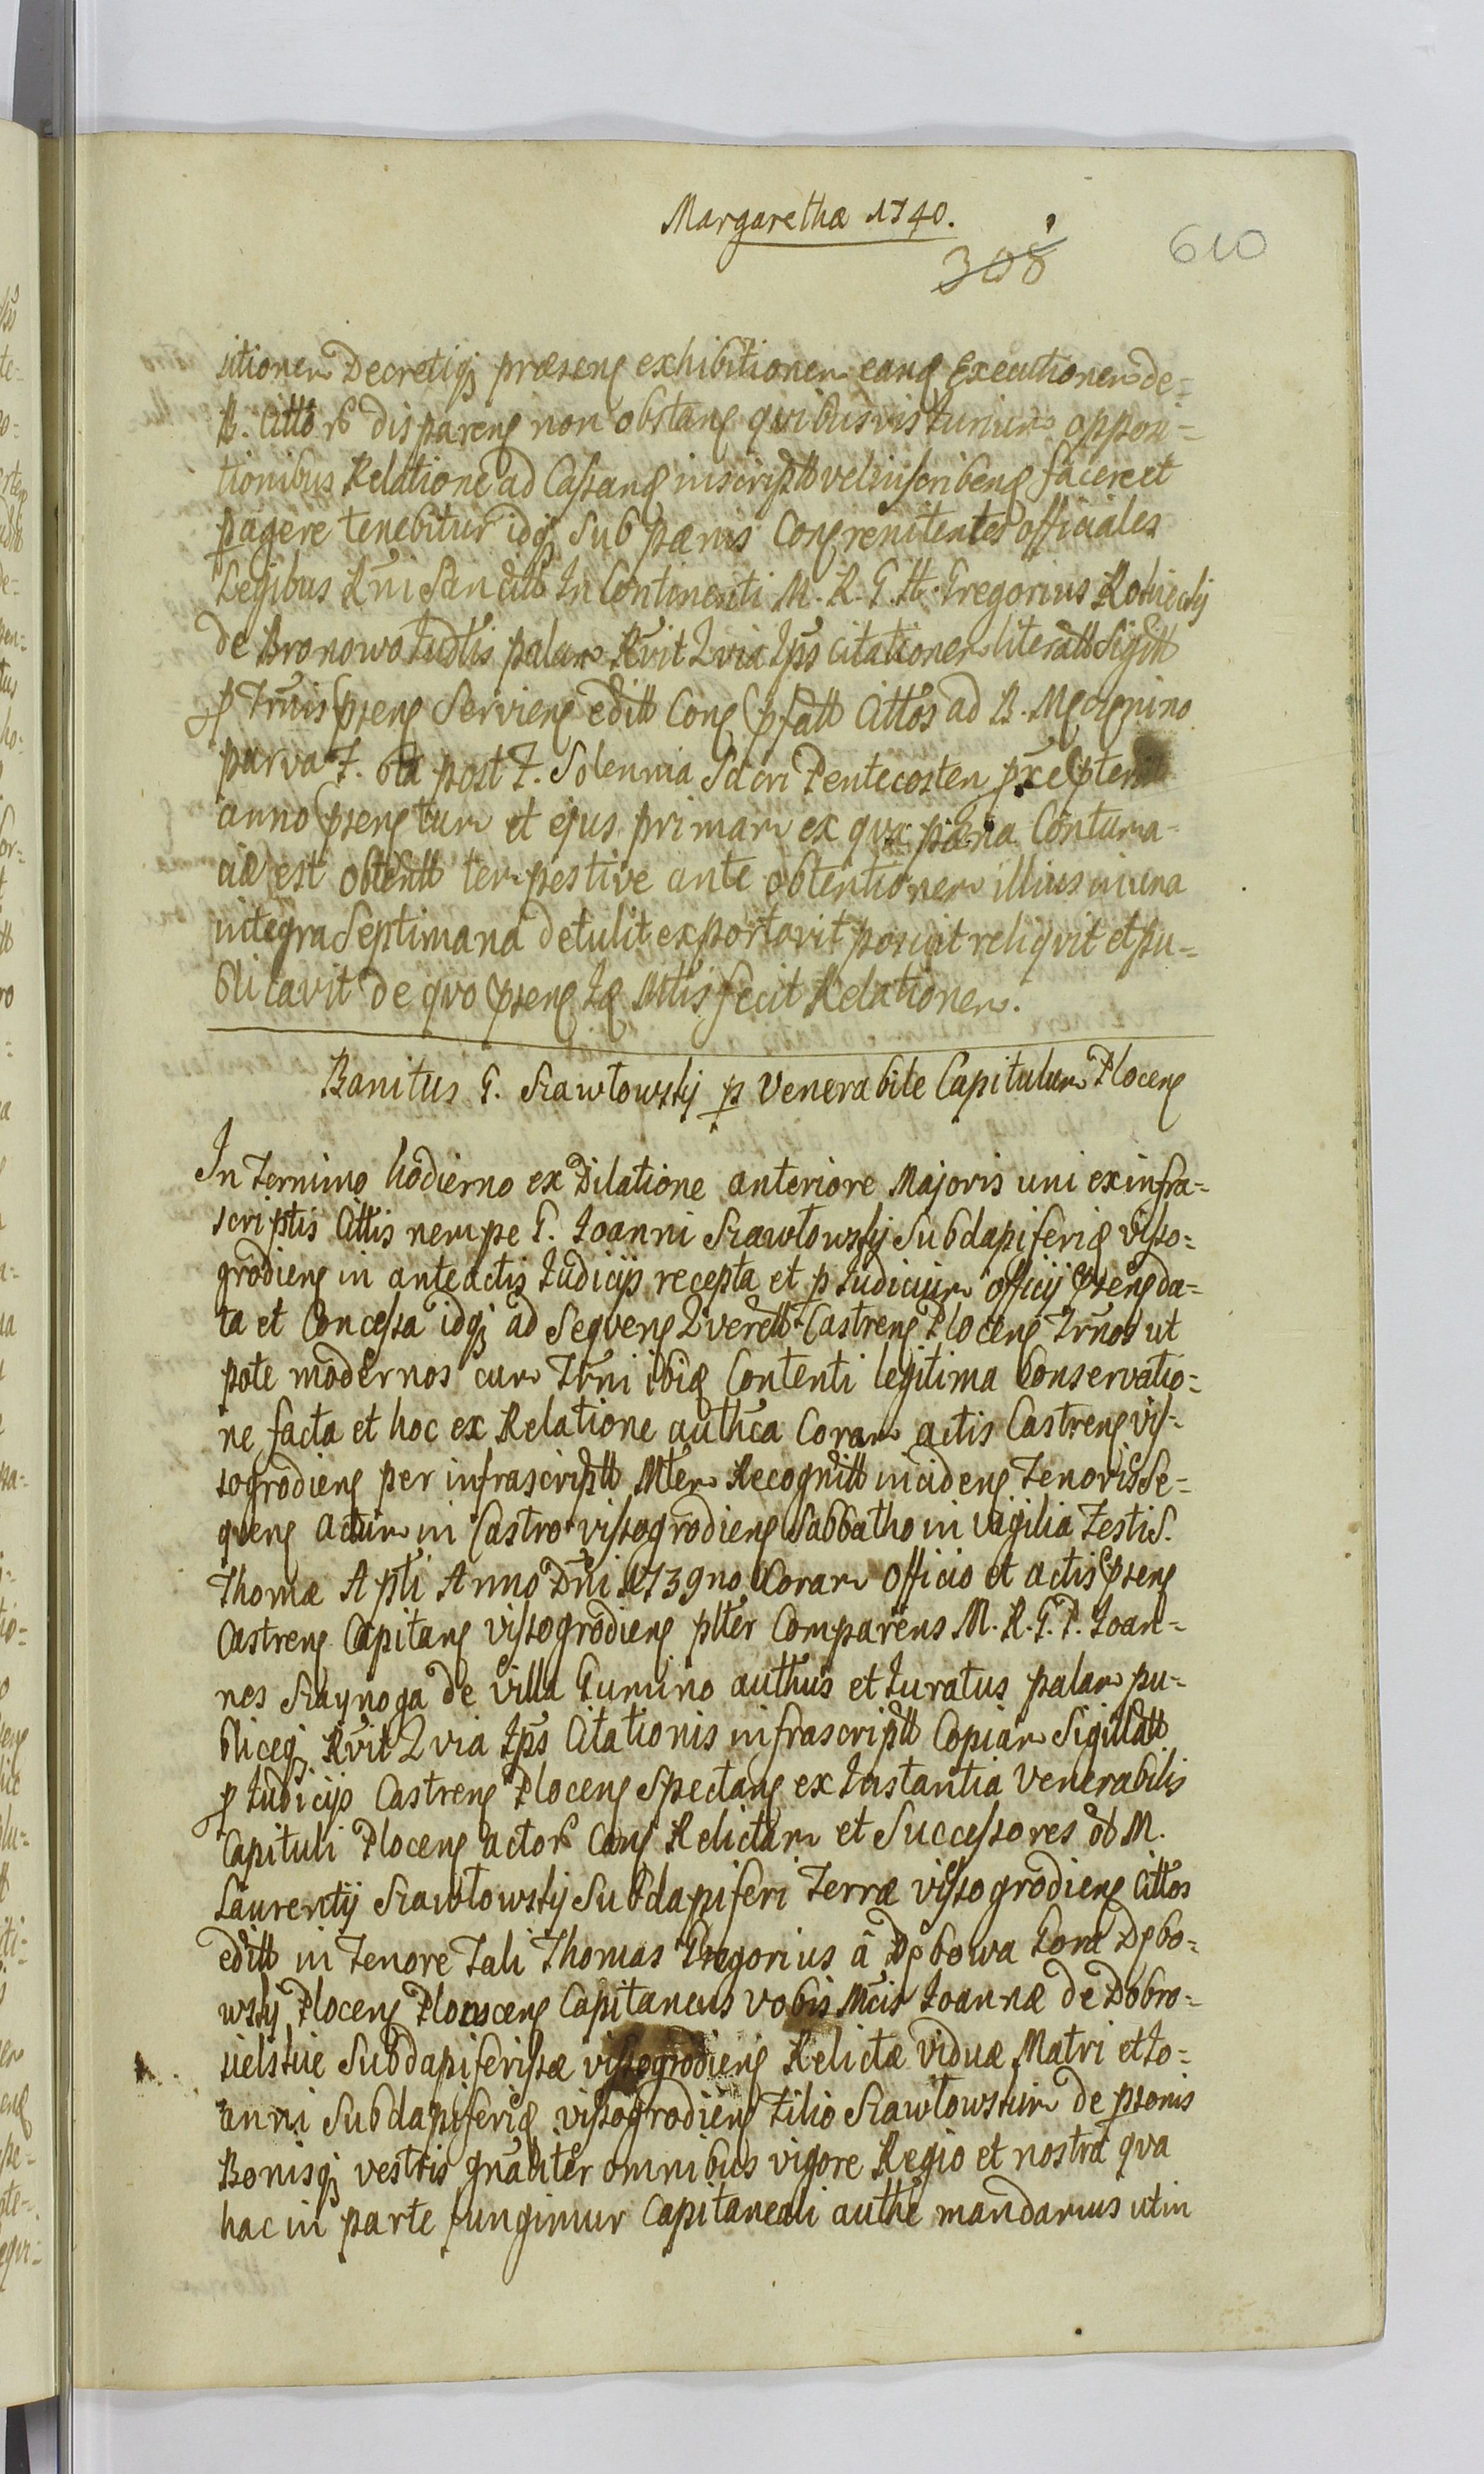 Margarethæ 1740.
308
610
itionem Decretiq; præsens exhibitionem eamq Executionem de=
B. Citto rō disparens non obstans quibusvis Jurium opposi=
tionibus Relatione ad Cassans inscriptt vel inscribens facere et
pagere tenebitur idq; sub pœnis Cons renitentes officiales
Legibus Rni Sancitts In Continenti M. R. G. A. Gregorius
de Bronowo Judtis palam Rvit Qvia Ips Citationem literatt Sigitt
p Trnis psens Serviens editt Cons pfatt Cittos ad B.
parva F. 6ta post F. Solennia Sacri Pentecosten
anno psens tum et ejus primam ex qva pœna Contuma=
ciæ est obtentt tempestive ante obtentionem illius in una
integra Septimana detulit exportavit posuit reliqvit et pu=
blicavit de qvo psens Mttis fecit Relationem.
Banitus G. Szawłowskj p Venerabile Capitulum Plocens
In Termino hodierno ex Dilatione anteriore Majoris uni ex infra=
scriptis Cittis nempe G. Joanni Szawłowskj Subdapiferiq visso=
grodiens in anteactis Judicijs recepta et p Judicium officij psens da=
ta et Concessa idq; ad Seqvens Qverett Castrens Plocens Trnos ut
pote modernos cum Trni ibiq Contenti legitima Conservatio=
ne facta et hoc ex Relatione authca Coram actis Castrens vis=
sogrodiens per infrascriptt Mtem Recognitt incidens Tenoris Se=
qvens Actum in Castro vissogrodiens Sabbatho in vigilia Festi S.
Thomæ Apti Anno Dni 1739no Coram Officio et actis psens
Castrens Capitans vissogrodiens plter Comparens M. R. G. P. Joan=
nes Szaynoga de Villa Gumino authus et Juratus palam pu=
bliceq; Rvit Qvia Ips Citationis infrascriptt Copiam Sigillatt
p Judicijo Castrens Plocens Spectans ex Instantia Venerabilis
Capituli Plocens actorō Cons Relictam et Successores ol M.
Laurentij Szawłowskj Subdapiferi Terræ vissogrodiens Cittos
editt in Tenore Tali Thomas Gregorius â Dębowa Gora Dębo=
wskj Plocens Capitaneus vobis Mcis Joannæ de Dobro=
sielskie Subdapiferissæ vissogrodiens Relictæ viduæ Matri et Jo=
anni Subdapiferiq vissogrodiens Filio Szawłowskim de psonis
Bonisq; vestris gnaliter omnibus vigore Regio et nostra qva
hac in parte fungimur Capitaneali authe mandamus ut in